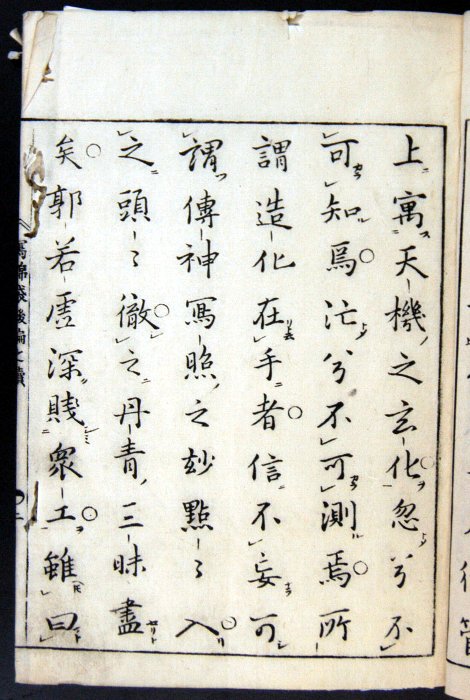 上寓天機之玄化忽兮不
可知焉茫兮不可測焉所
謂造化在手者信不妄可
謂傳神寫照之玅點々入
之頭々徹之丹青三昧盡
矣郭若虛深賤眾工雖曰